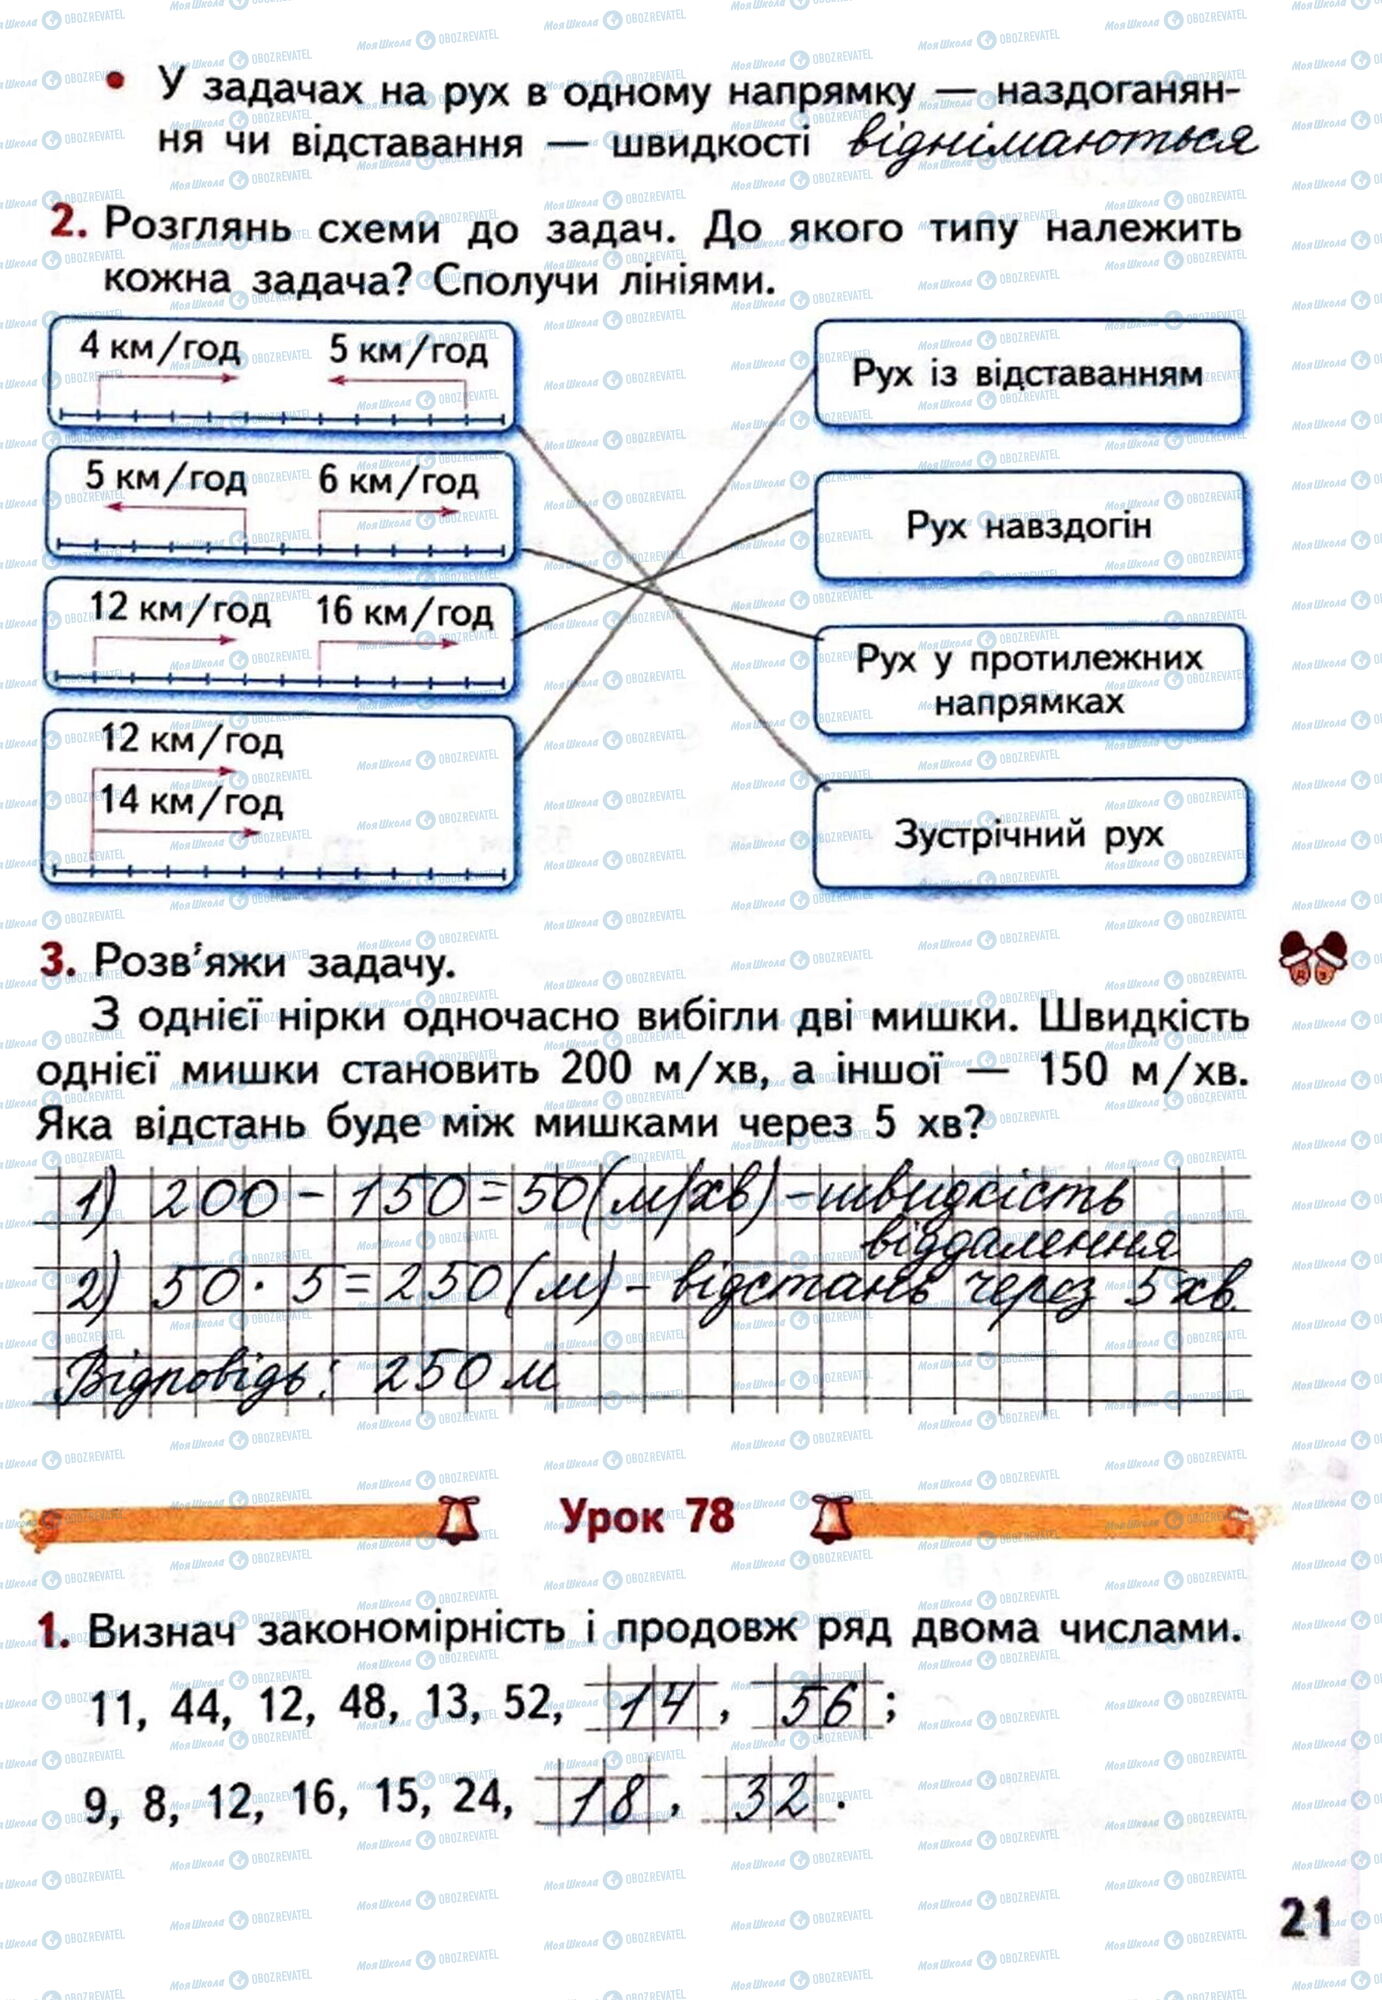 • У задачах на рух в одному напрямку — наздоганян-
ня чи відставання — швидкості віднімаються
2. Розглянь схеми до задач. До якого типу належить
кожна задача? Сполучи лініями.
4 км/год 5 км/год
Рух із відставанням
5 км/год 6 км/год
Рух навздогін
12 км/год 16 км/год
Рух у протилежних
напрямках
12 км/год
14 км/год
Зустрічний рух
3. Розв'яжи задачу.
З однієї нірки одночасно вибігли дві мишки. Швидкість
однієї мишки становить 200 м/хв, а іншої — 150 м/хв.
Яка відстань буде між мишками через 5 хв?
1) 200 - 150 = 50 (м/хв) - швидкість
віддалення
2) 50 · 5 = 250 (м) - відстань через 5 хв.
Відповідь: 250 м
Урок 78
1. Визнач закономірність і продовж ряд двома числами.
11, 44, 12, 48, 13, 52, 14, 56;
9, 8, 12, 16, 15, 24, 18, 32.
21
МояШкола OBOZREVATEL